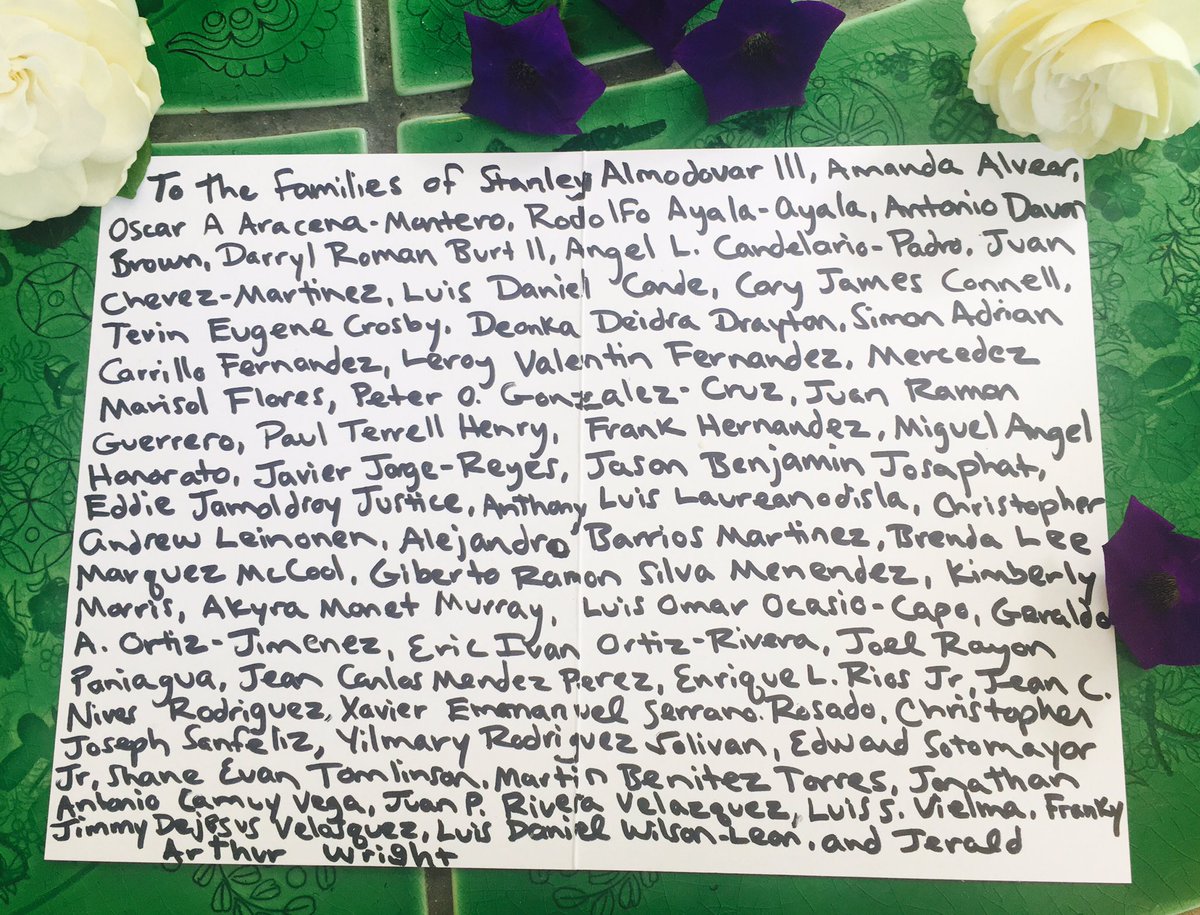 To the Families of Stanley Almodovar III, Amanda Alvear,
Oscar A Aracena-Montero, Rodolfo Ayala-Ayala, Antonio Davon
Brown, Darryl Roman Burt II, Angel L. Candelario-Padro, Juan
Chevez-Martinez, Luis Daniel Conde, Cory James Connell,
Tevin Eugene Crosby, Deonka Deidra Drayton, Simon Adrian
Carrillo Fernandez, Leroy Valentin Fernandez, Mercedez
Marisol Flores, Peter O. Gonzalez-Cruz, Juan Ramon
Guerrero, Paul Terrell Henry, Frank Hernandez, Miguel Angel
Honorato, Javier Jorge-Reyes, Jason Benjamin Josaphat,
Eddie Jamoldroy Justice, Anthony Luis Laureanodisla, Christopher
Andrew Leinonen, Alejandro Barrios Martinez, Brenda Lee
Marquez McCool, Giberto Ramon Silva Menendez, Kimberly
Morris, Akyra Monet Murray, Luis Omar Ocasio-Capo, Geraldo
A. Ortiz-Jimenez, Eric Ivan Ortiz-Rivera, Joel Rayon
Paniagua, Jean Carlos Mendez Perez, Enrique L. Rios Jr, Jean C.
Nives Rodriguez, Xavier Emmanuel Serrano-Rosado, Christopher
Joseph Sanfeliz, Yilmary Rodriguez Solivan, Edward Sotomayor
Jr, Shane Evan Tomlinson, Martin Benitez Torres, Jonathan
Antonio Camuy Vega, Juan P. Rivera Velazquez, Luis S. Vielma, Franky
Jimmy Dejesus Velazquez, Luis Daniel Wilson-Leon, and Jerald
Arthur Wright